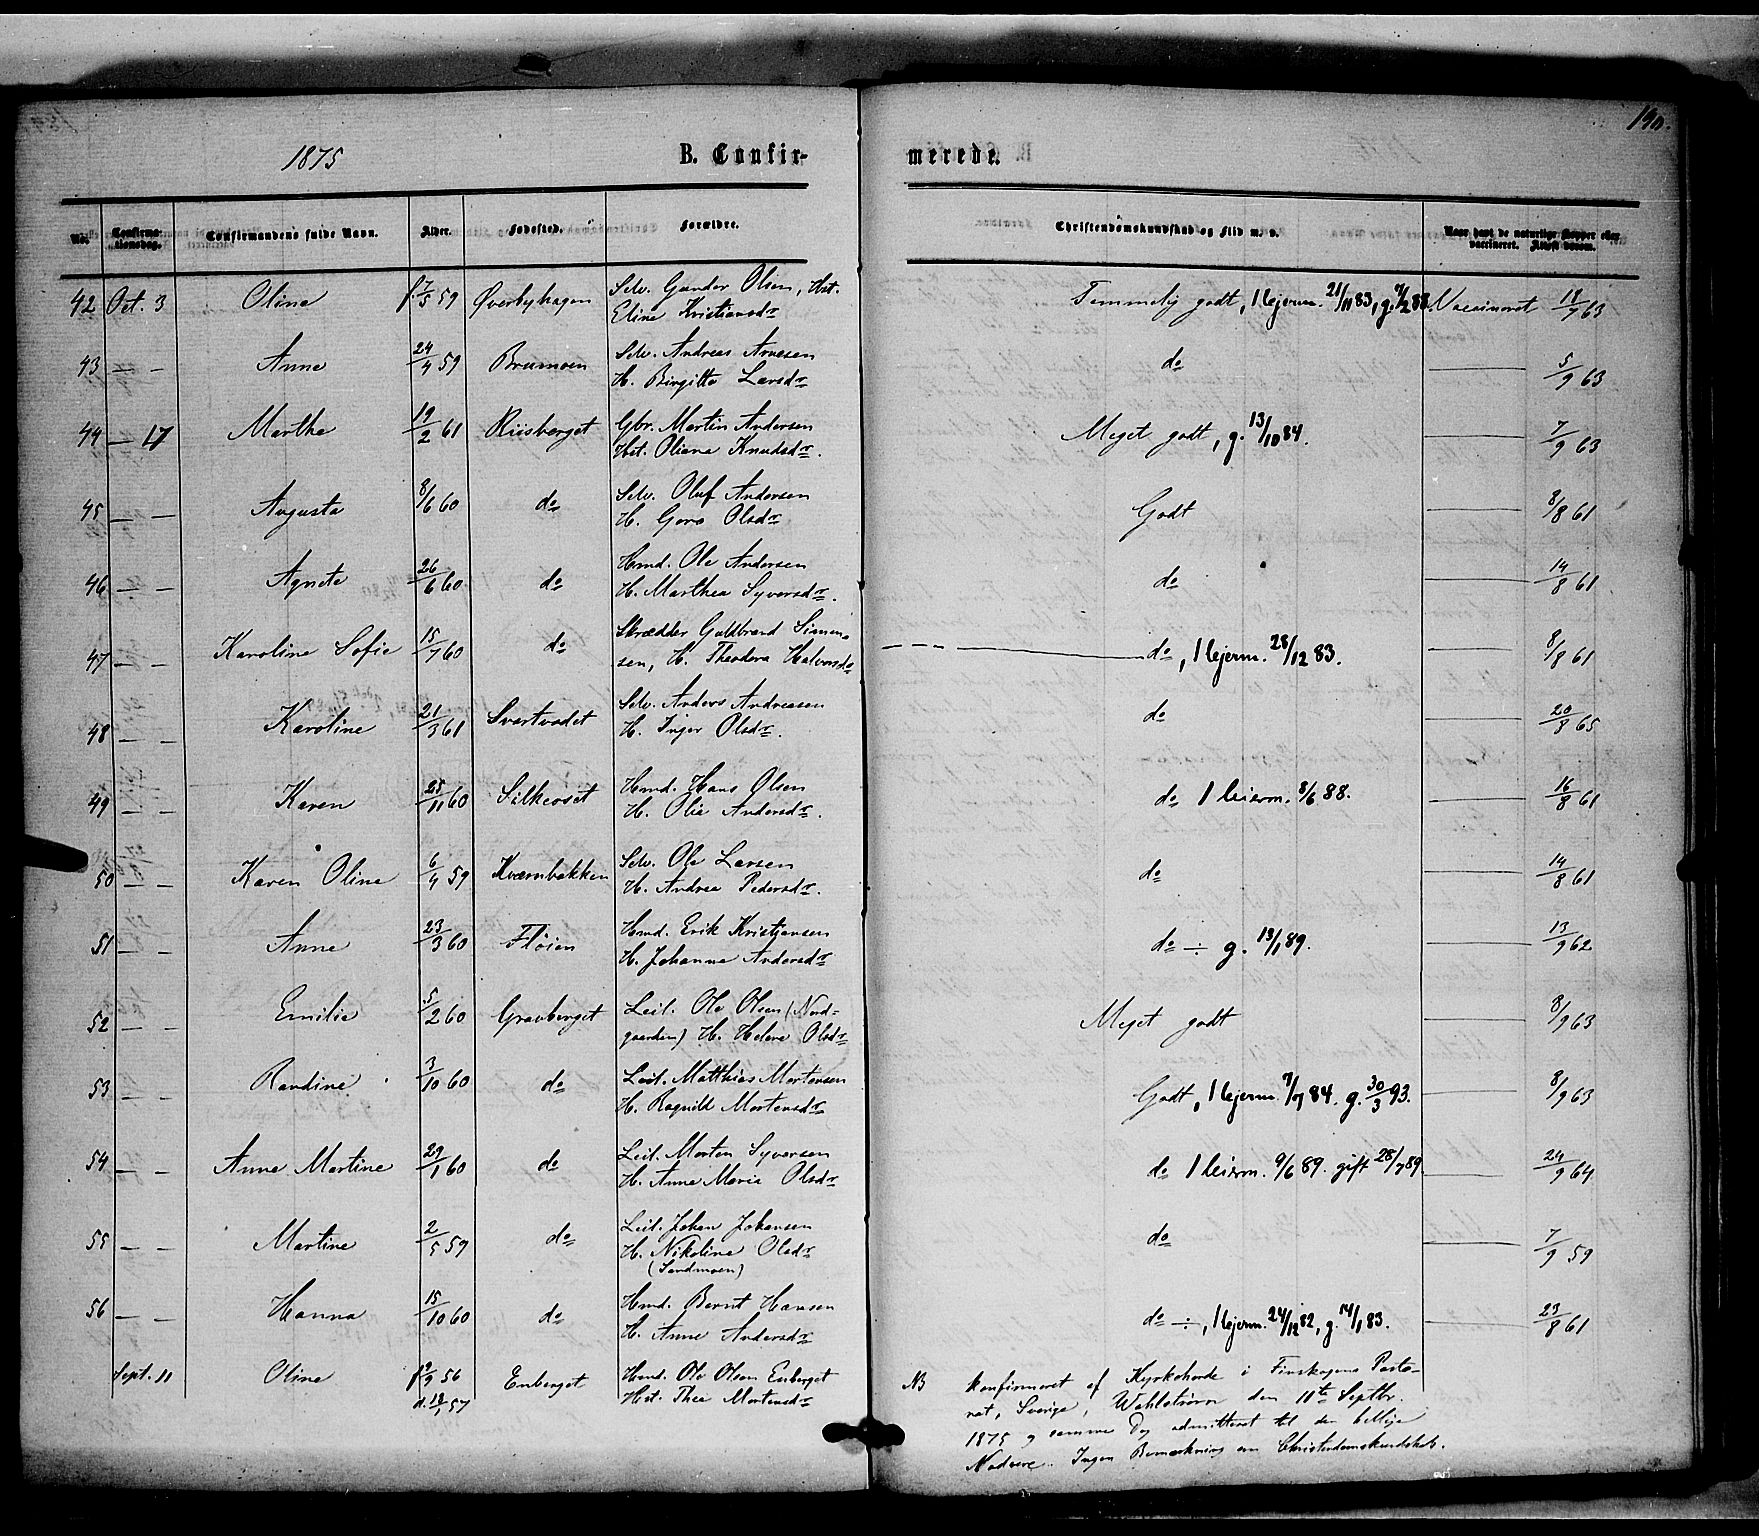 190.
1875 B. Confir- merede.
No. Confirmationsdag. Confirmandens fulde Navn. Alder. Fødested. Forældre. Christendomskundskab og Flid m. v. Naar havt de naturlige Kopper eller vaccineret. Attest derom.
42 Oct. 3 Olina f. 7/5 59 Øverbyhagen Selv. Gunder Olsen, Hst. Temmelig godt, 1 lejerm. 21/11 83, g. Vaccineret 18/7 63
Eline Kristiansdr
43 — - Anne 24/4 59 Brumoen Selv. Andreas Arnesen do 5/9 63
H. Birgitte Larsdr
44 — 17 Marthe 19/2 61 Riisberget Gbr. Martin Andersen Meget godt, g. 13/10 84. 7/9 63
Hst. Oliana Knudsdr.
45 — — Augusta 8/6 60 do Selv. Oluf Andersen Godt 8/8 61
H. Goro Olsdr
46 — - Agnete 26/6 60 do Hmd. Ole Andersen do 14/8 61
H. Marthea Syversdr.
47 — - Karoline Sofie 15/7 60 do Skrædder Guldbrand Simen- do, 1 lejerm. 28/12 83. 8/8 61
sen, H. Theodora Halvorsdr
48 — - Karoline 21/3 61 Svartvadet Selv. Anders Andreasen do 20/8 65
H. Inger Olsdr.
49 — - Karen 25/11 60 Silkeoset Hmd. Hans Olsen do 1 leierm. 8/6 88. 16/8 61
H. Olia Andersdr.
50 — - Karen Oline 6/4 59 Kværnbakken Selv. Ole Larsen do 14/8 61
H. Andrea Pedersdr.
51 — - Anne 23/3 60 Fløien Hmd. Erik Kristiansen do ÷ g. 13/1 89. 13/9 62
H. Johanne Andersdr
52 — - Emilie 5/2 60 Gravberget Leil. Ole Olsen (Nord- Meget godt 8/9 63
gaarden) H. Helene Olsdr
53 — - Randine 3/10 60 do Leil. Matthias Mortensen Godt, 1 lejerm. 7/7 84. g. 30/3 93. 8/9 63
H. Ragnild Mortensdr
54 — - Anne Martine 29/1 60 do Leil. Morten Syversen do 1 leierm. 9/6 89. gift 28/7 89. 24/9 64
H. Anne Maria Olsdr
55 — - Martine 2/5 59 do Leil. Johan Johansen do 7/9 59
H. Nikoline Olsdr
(Sandmoen)
56 — - Hanna 15/10 60 do Hmd. Bernt Hansen do ÷, 1 lejerm. 24/12 82, g. 14/1 83. 23/8 61
H. Anne Andersdr
Sept. 11 Oline f. 2/9 56 Enberget Hmd. Ole Olsen Enberget NB konfirmeret af Kyrkoherde i Finskogens Pasto-
d. 18/1 57 Hst. Thea Mortensdr rat, Sverige, Wahlstrøm den 11te Septbr.
1875 og samme Dag admitteret til den hellige
Nadvere. Ingen Bemærkning om Christendomskundskab.